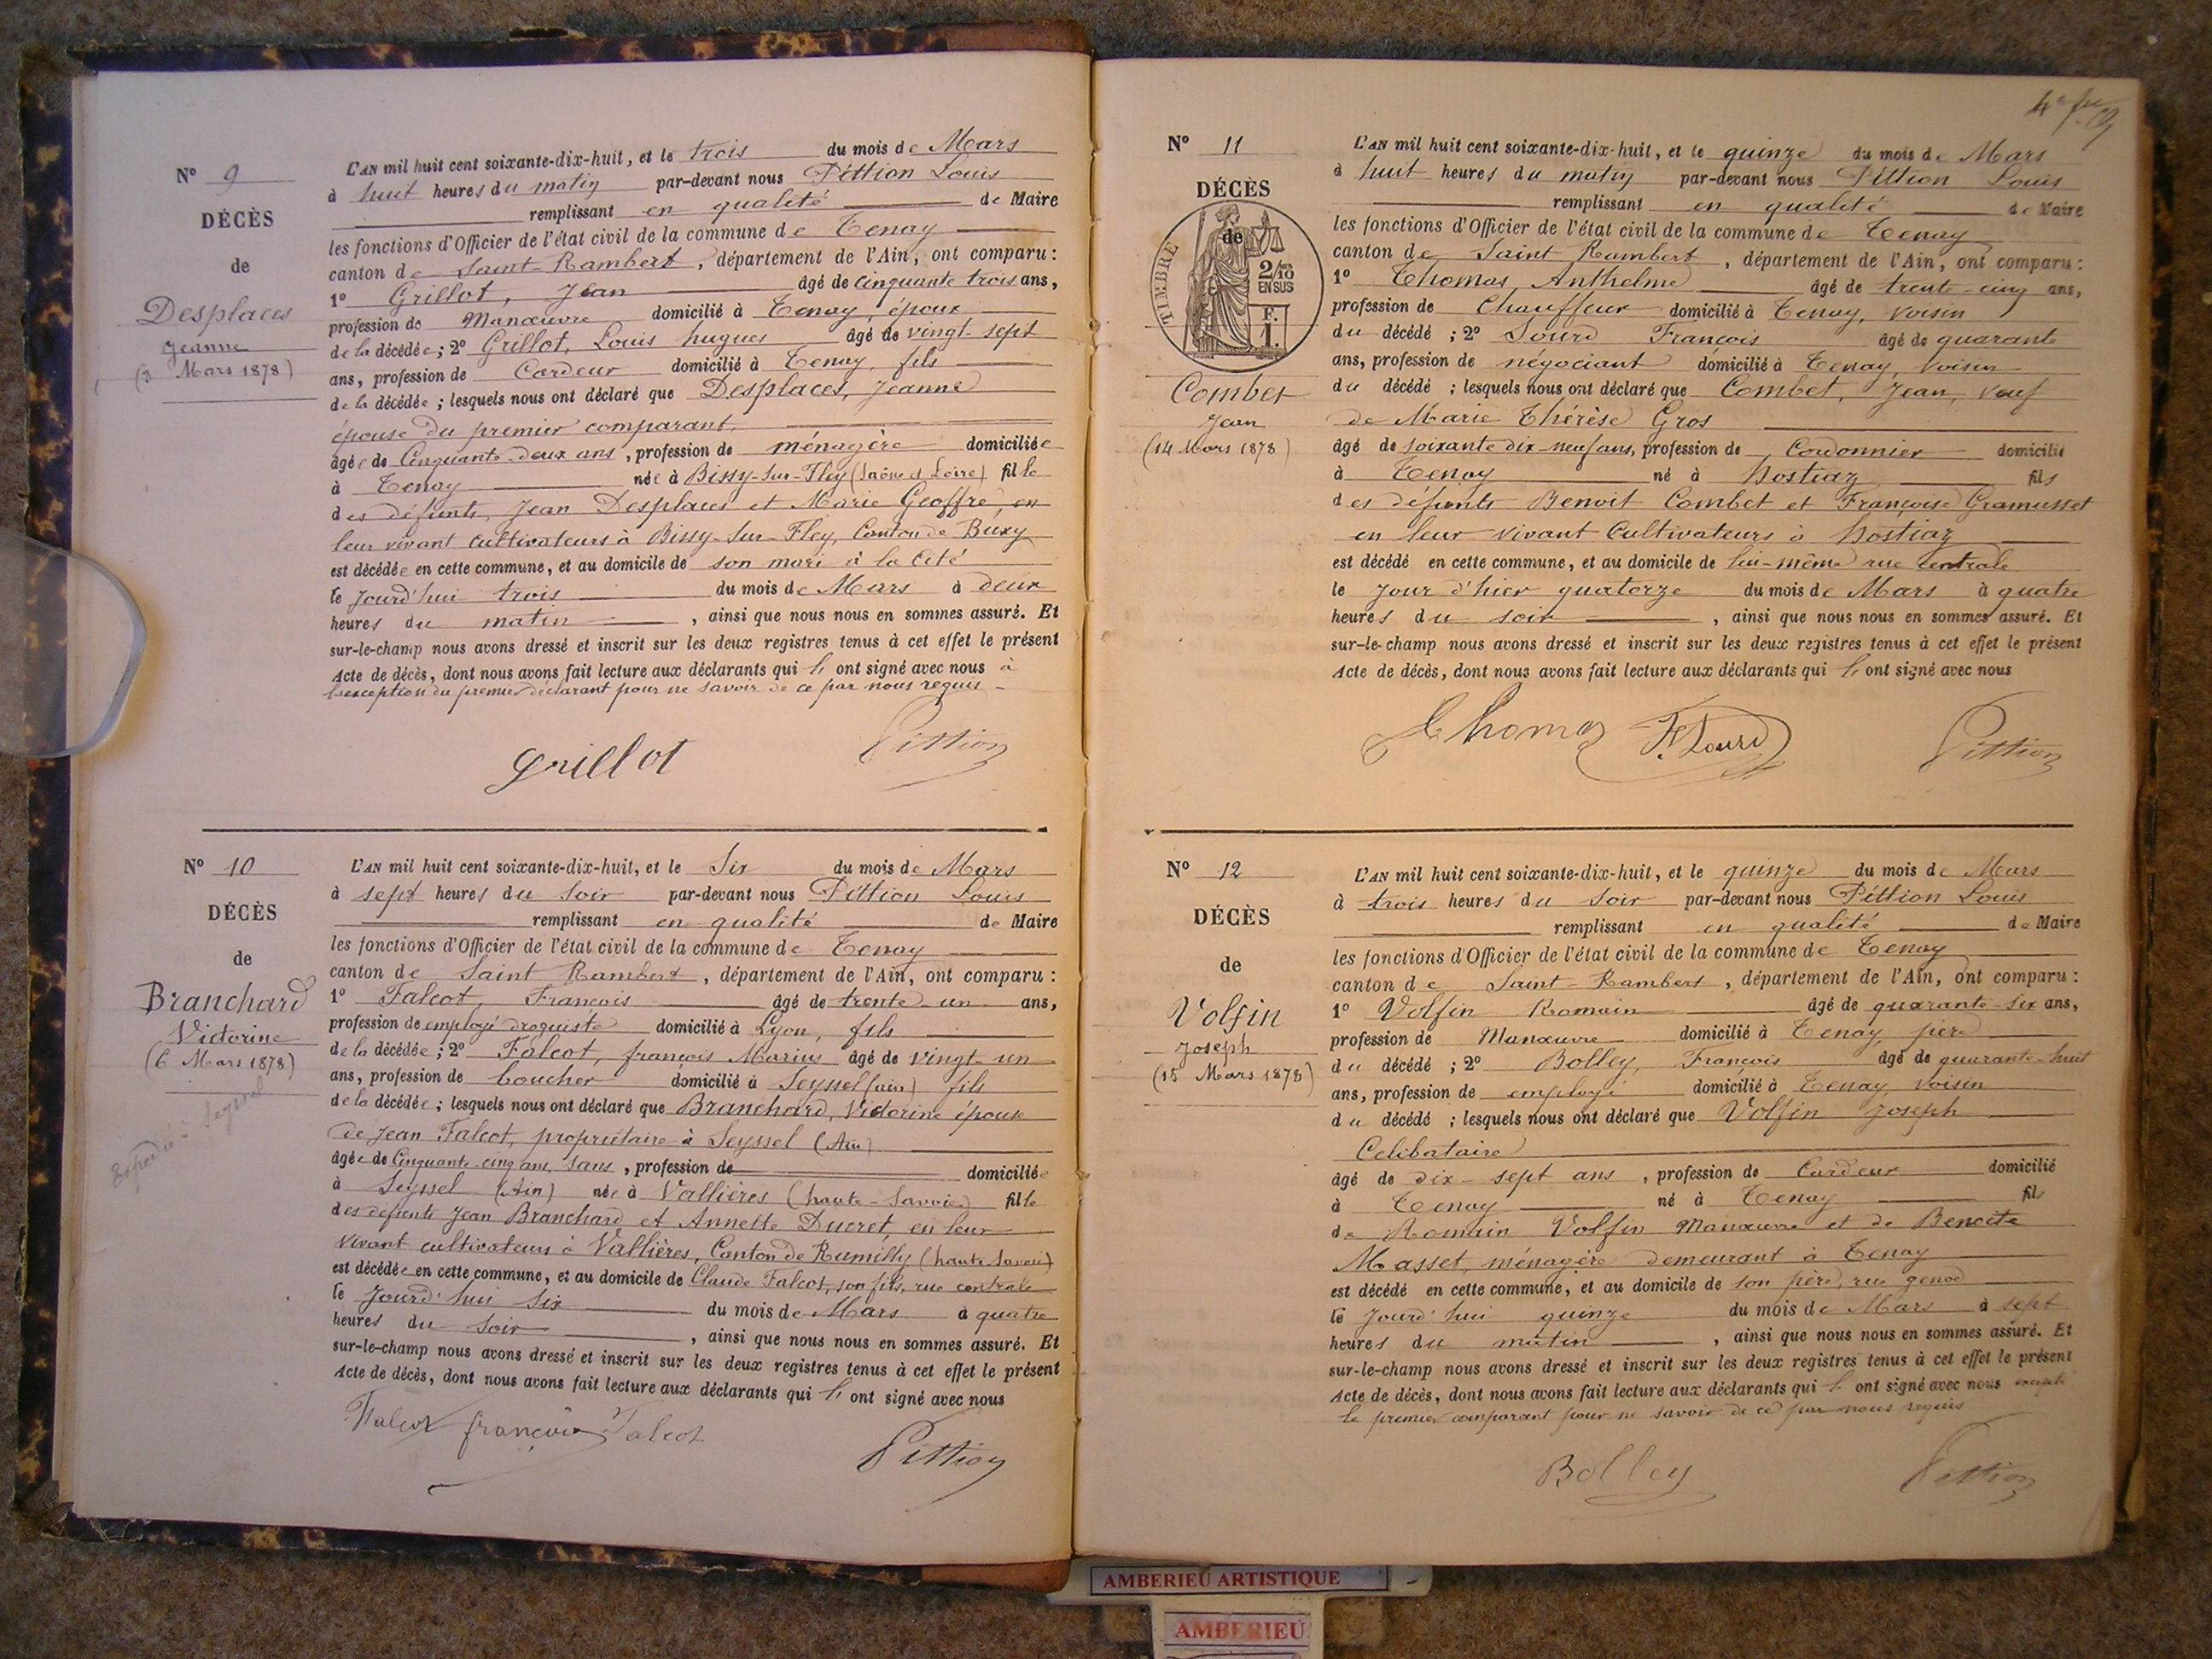 Nº 9
DÉCÈS
de
Desplaces
Jeanne
(3 Mars 1878)
L'AN mil huit cent soixante-dix-huit, et le trois du mois de Mars
à huit heures du matin par-devant nous Pittion Louis
remplissant en qualité de Maire
les fonctions d'Officier de l'état civil de la commune de Tenay
canton de Saint-Rambert, département de l'Ain, ont comparu :
1º Grillot, Jean âgé de Cinquante trois ans,
profession de Manœuvre domicilié à Tenay, époux
de la décédée ; 2º Grillot, Louis hugues âgé de vingt-sept
ans, profession de Cardeur domicilié à Tenay, fils
de la décédée ; lesquels nous ont déclaré que Desplaces, Jeanne
épouse du premier comparant,
âgée de Cinquante-deux ans, profession de ménagère domiciliée
à Tenay née à Bissy-sur-Fley (Saône et Loire) fille
des défunts, Jean Desplaces et Marie Geoffre, en
leur vivant Cultivateurs à Bissy-sur-Fley, Canton de Buxy
est décédée en cette commune, et au domicile de son mari à la Cité
le Jourd'hui trois du mois de Mars à deux
heures du matin, ainsi que nous nous en sommes assuré. Et
sur-le-champ nous avons dressé et inscrit sur les deux registres tenus à cet effet le présent
Acte de décès, dont nous avons fait lecture aux déclarants qui ont signé avec nous à
l'exception du premier déclarant pour ne savoir de ce par nous requis
Grillot Pittion
Nº 10
DÉCÈS
de
Branchard
Victorine
(6 Mars 1878)
Seyssel
L'AN mil huit cent soixante-dix-huit, et le Six du mois de Mars
à sept heures du soir par-devant nous Pittion Louis
remplissant en qualité de Maire
les fonctions d'Officier de l'état civil de la commune de Tenay
canton de Saint Rambert, département de l'Ain, ont comparu :
1º Falcot, François âgé de trente-un ans,
profession de employé droguiste domicilié à Lyon, fils
de la décédée ; 2º Falcot, françois Marius âgé de vingt-un
ans, profession de boucher domicilié à Seyssel (ain) fils
de la décédée ; lesquels nous ont déclaré que Branchard, Victorine épouse
de Jean Falcot, propriétaire à Seyssel (Ain)
âgée de Cinquante-cinq ans, Sans, profession de domiciliée
à Seyssel (Ain) née à Vallières (haute-Savoie) fille
des defunts Jean Branchard et Annette Ducret, en leur
vivant cultivateurs à Vallières, Canton de Rumilly (haute Savoie)
est décédée en cette commune, et au domicile de Claude Falcot, son fils, rue centrale
le Jourd'hui six du mois de Mars à quatre
heures du soir, ainsi que nous nous en sommes assuré. Et
sur-le-champ nous avons dressé et inscrit sur les deux registres tenus à cet effet le présent
Acte de décès, dont nous avons fait lecture aux déclarants qui ont signé avec nous
Falcot françois Falcot
Pittion
Nº 11
DÉCÈS
de
TIMBRE
2/10
EN SUS
F.
1.
Combet
Jean
(14 Mars 1878)
L'AN mil huit cent soixante-dix-huit, et le quinze du mois de Mars
à huit heures du matin par-devant nous Pittion Louis
remplissant en qualité de Maire
les fonctions d'Officier de l'état civil de la commune de Tenay
canton de Saint Rambert, département de l'Ain, ont comparu :
1º Thomas, Anthelme âgé de trente-cinq ans,
profession de Chauffeur domicilié à Tenay, voisin
du décédé ; 2º Sourd François âgé de quarante
ans, profession de négociant domicilié à Tenay, voisin
du décédé ; lesquels nous ont déclaré que Combet, Jean, Veuf
de Marie Thérèse Gros
âgé de soixante dix neuf ans, profession de Cordonnier domicilié
à Tenay né à hostiaz fils
des défunts Benoit Combet et Françoise Gramusset
en leur vivant Cultivateurs à hostiaz
est décédé en cette commune, et au domicile de lui-même rue Centrale
le Jour d'hier quatorze du mois de Mars à quatre
heures du soir, ainsi que nous nous en sommes assuré. Et
sur-le-champ nous avons dressé et inscrit sur les deux registres tenus à cet effet le présent
Acte de décès, dont nous avons fait lecture aux déclarants qui ont signé avec nous
Thomas F. Sourd Pittion
Nº 12
DÉCÈS
de
Volfin
Joseph
(15 Mars 1878)
L'AN mil huit cent soixante-dix-huit, et le quinze du mois de Mars
à trois heures du soir par-devant nous Pittion Louis
remplissant en qualité de Maire
les fonctions d'Officier de l'état civil de la commune de Tenay
canton de Saint-Rambert, département de l'Ain, ont comparu :
1º Volfin Romain âgé de quarante-six ans,
profession de Manœuvre domicilié à Tenay, père
du décédé ; 2º Bolley, François âgé de quarante-huit
ans, profession de employé domicilié à Tenay, voisin
du décédé ; lesquels nous ont déclaré que Volfin Joseph
Celibataire
âgé de dix-sept ans, profession de Cardeur domicilié
à Tenay né à Tenay fils
de Romain Volfin Manœuvre et de Benoite
Masset, ménagère demeurant à Tenay
est décédé en cette commune, et au domicile de son père, rue genod
le Jourd'hui quinze du mois de Mars à sept
heures du matin, ainsi que nous nous en sommes assuré. Et
sur-le-champ nous avons dressé et inscrit sur les deux registres tenus à cet effet le présent
Acte de décès, dont nous avons fait lecture aux déclarants qui ont signé avec nous excepté
le premier comparant pour ne savoir de ce par nous requis
Bolley Pittion
AMBERIEU ARTISTIQUE
AMBERIEU